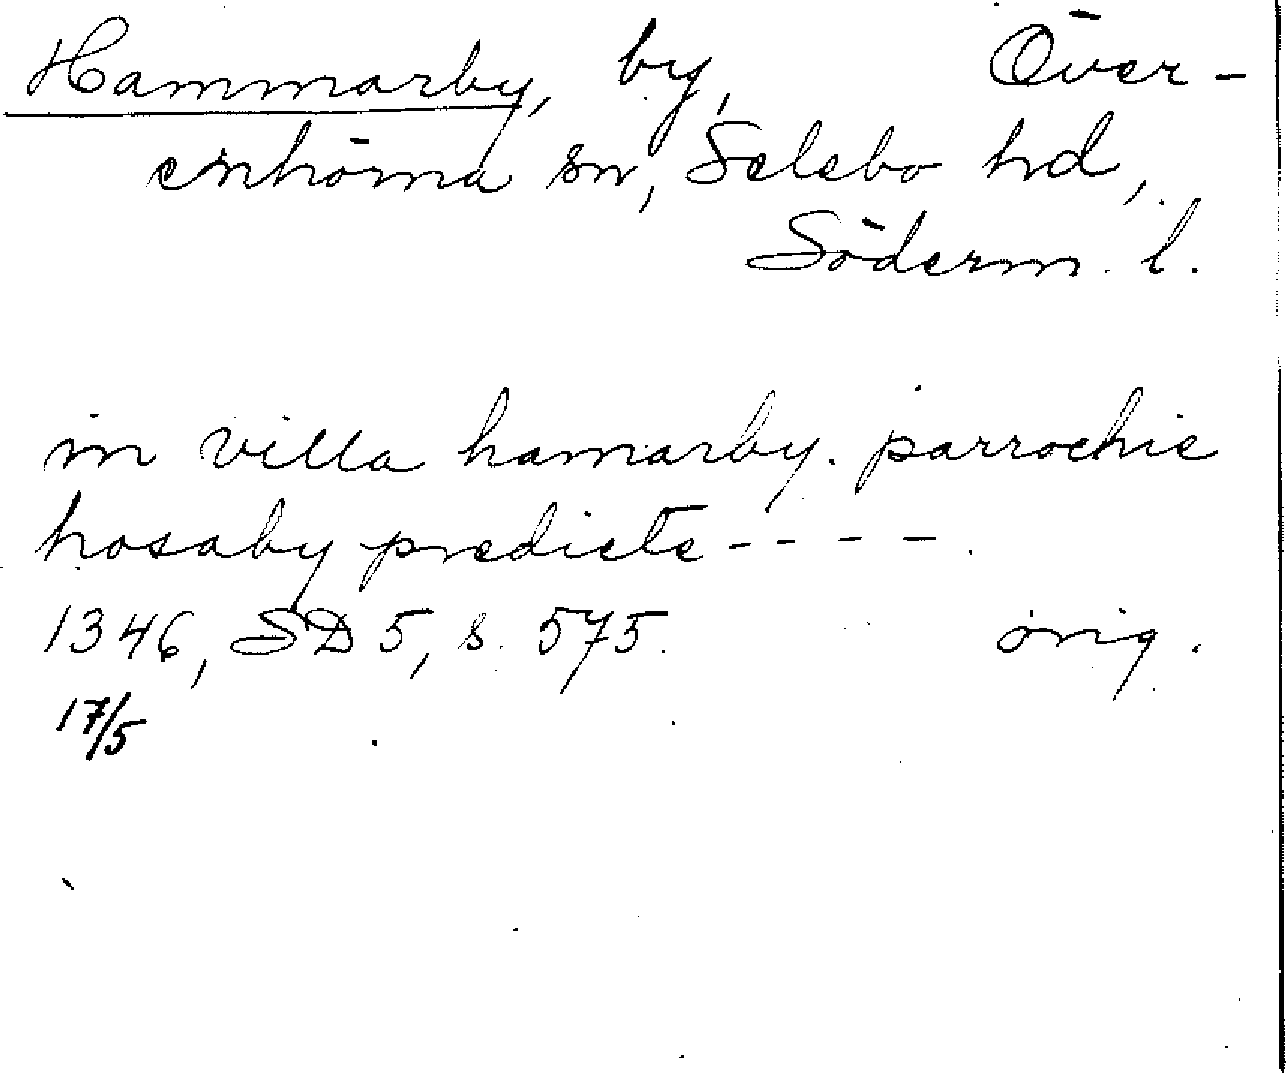 Hammarby, by, Över-
enhörna sn, Selebo hd,
Söderm. l.
in villa hamarby. parrochie
hosaby predicte - - - - .
1346, SD 5, s. 575. orig.
17/5